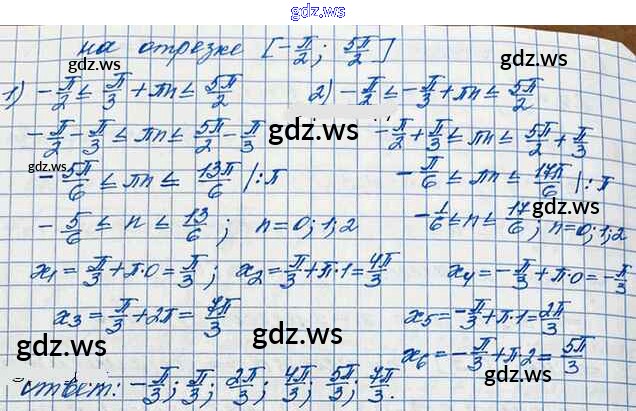 gdz.ws
на отрезке [-π/2; 5π/2]
gdz.ws
gdz.ws
1) -π/2 ≤ π/3 + πn ≤ 5π/2
2) -π/2 ≤ -π/3 + πn ≤ 5π/2
gdz.ws
-π/2 - π/3 ≤ πn ≤ 5π/2 - π/3
-π/2 + π/3 ≤ πn ≤ 5π/2 + π/3
gdz.ws
gdz.ws
-5π/6 ≤ πn ≤ 13π/6 |:π
-π/6 ≤ πn ≤ 17π/6 |:π
gdz.ws
-5/6 ≤ n ≤ 13/6; n=0;1;2
-1/6 ≤ n ≤ 17/6; n=0;1;2
x₁ = π/3 + π·0 = π/3; x₂ = π/3 + π·1 = 4π/3
x₄ = -π/3 + π·0 = -π/3
x₃ = π/3 + 2π = 7π/3
x₅ = -π/3 + π·1 = 2π/3
gdz.ws
gdz.ws
x₆ = -π/3 + π·2 = 5π/3
gdz.ws
Ответ: -π/3; π/3; 2π/3; 4π/3; 5π/3; 7π/3.